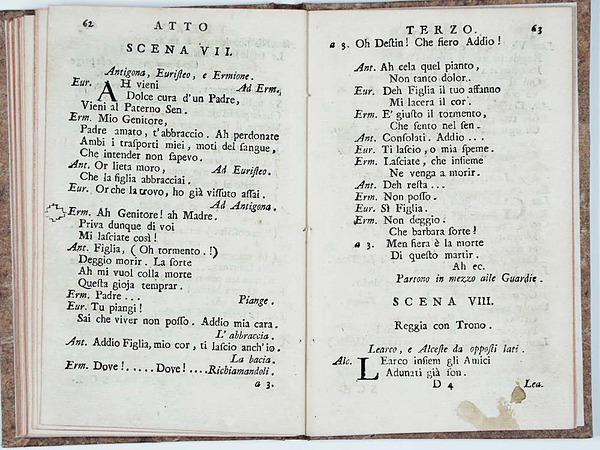 62 ATTO
SCENA VII.
Antigona, Euristeo, e Ermione.
Eur. AH vieni Ad Erm.
Dolce cura d'un Padre,
Vieni al Paterno Sen.
Erm. Mio Genitore,
Padre amato, t'abbraccio. Ah perdonate
Ambi i trasporti miei, moti del sangue,
Che intender non sapevo.
Ant. Or lieta moro, Ad Euristeo.
Che la figlia abbracciai.
Eur. Or che la trovo, ho già vissuto assai.
Ad Antigona.
Erm. Ah Genitore! ah Madre.
Priva dunque di voi
Mi lasciate così!
Ant. Figlia, (Oh tormento.!)
Deggio morir. La sorte
Ah mi vuol colla morte
Questa gioja temprar.
Erm. Padre... Piange.
Eur. Tu piangi!
Sai che viver non posso. Addio mia cara.
L'abbraccia.
Ant. Addio Figlia, mio cor, ti lascio anch'io.
La bacia.
Erm. Dove!..... Dove!....Richiamandoli.
a 3.
TERZO. 63
a 3. Oh Destin! Che fiero Addio!
Ant. Ah cela quel pianto,
Non tanto dolor..
Eur. Deh Figlia il tuo affanno
Mi lacera il cor.
Erm. E' giusto il tormento,
Che sento nel sen.
Ant. Consolati. Addio...
Eur. Ti lascio, o mia speme.
Erm. Lasciate, che insieme
Ne venga a morir.
Ant. Deh resta...
Erm. Non posso.
Eur. Sì Figlia.
Erm. Non deggio.
Che barbara sorte!
a 3. Men fiera è la morte
Di questo martir.
Ah ec.
Partono in mezzo alle Guardie.
SCENA VIII.
Reggia con Trono.
Learco, e Alceste da opposti lati.
Alc. LEarco insiem gli Amici
Adunati già son.
D 4 Lea.